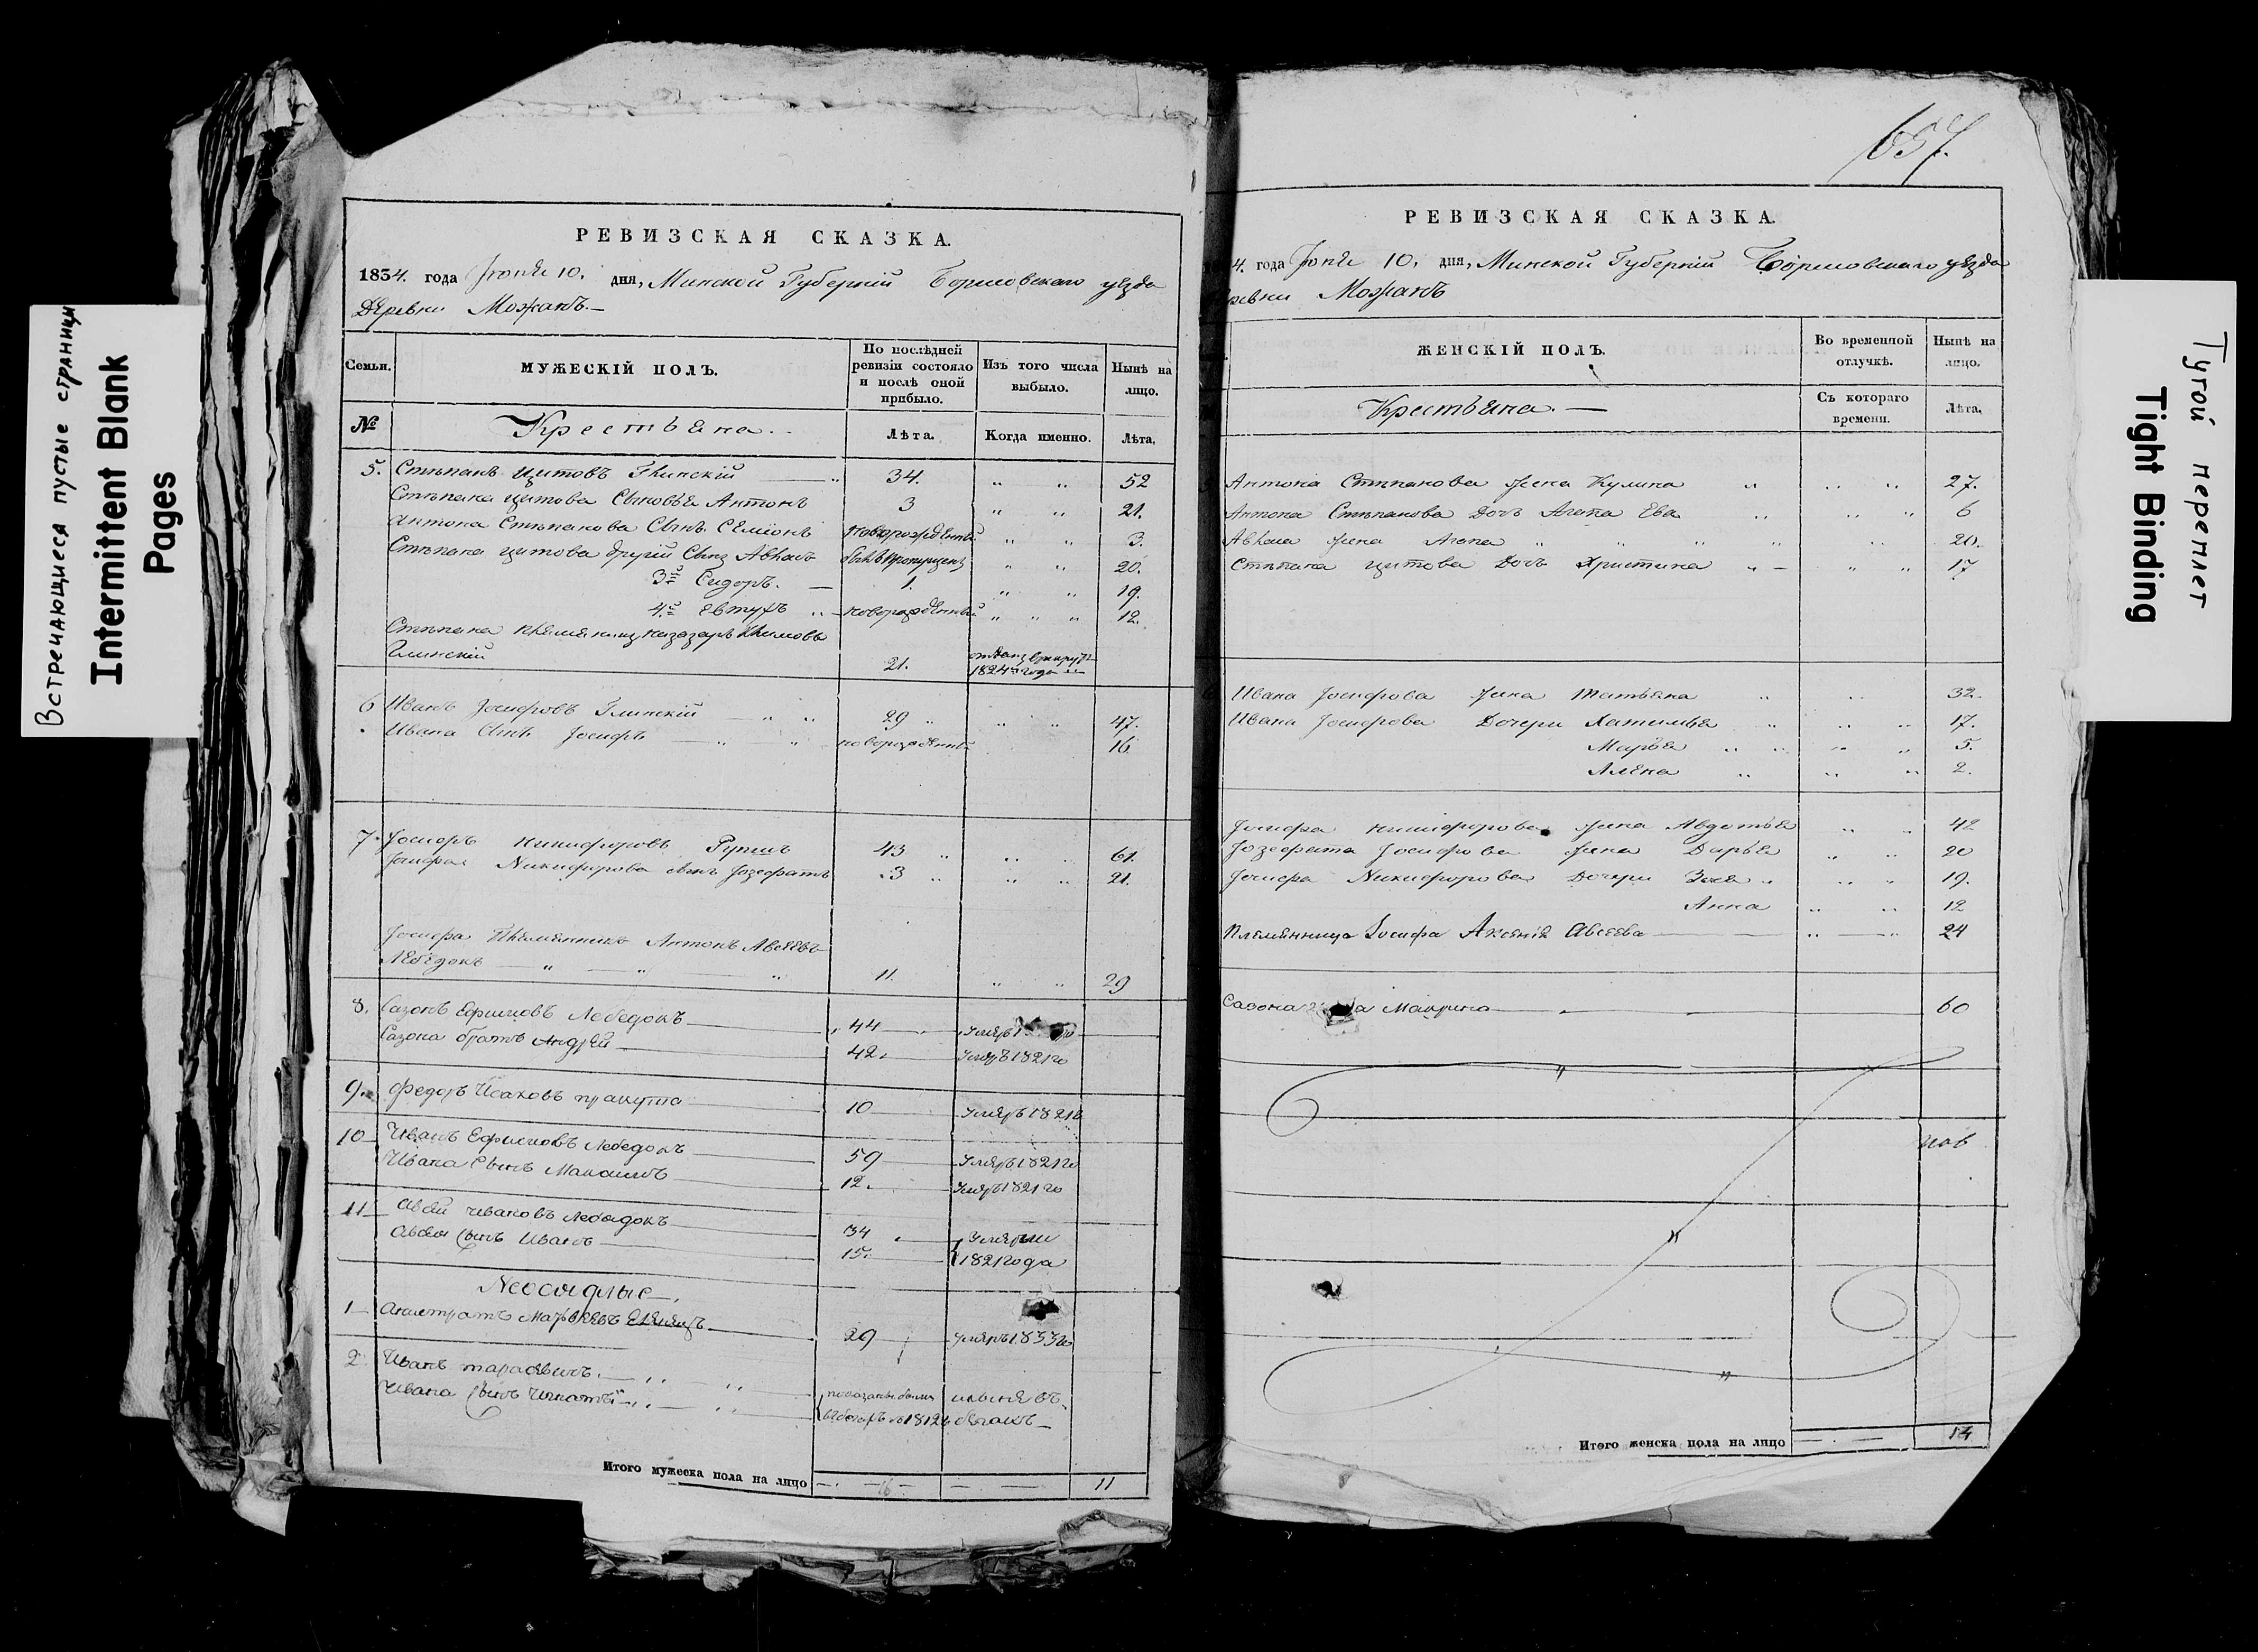 Встречающиеся пустые страницы
Intermittent Blank
Pages
РЕВИЗСКАЯ СКАЗКА.
1834. года Іюня 10. дня, Минской Губерніи Борисовскаго уѣзда
Деревни Можанъ.—
Семьи.
МУЖЕСКІЙ ПОЛЪ.
По послѣдней ревизіи состояло и послѣ оной прибыло.
Изъ того числа выбыло.
Нынѣ на лицо.
№
Крестьяна.
Лѣта.
Когда именно.
Лѣта.
5. Стѣпанъ Цитовъ Глинскій 34. " " 52
Стѣпана Цитова Сыновья Антонъ 3 " " 21.
Антона Стѣпанова Сынъ Семіонъ новорожденный " " 3.
Стѣпана Цитова другій Сынъ былъ пропущенъ " " 20.
3й Сидоръ. — 1. " " 19.
4й Евтухъ новорожденный " " " 12.
Стѣпана
Глинскій 21. 1824 года
6 Иванъ Іосифовъ Глинскій 29 " " " 47.
Ивана Сынъ Іосифъ новорожденный 16
7. Іосифъ Никифоровъ 43 " " 61.
Іосифа Никифорова Сынъ Іозефатъ 3 " " 21.
Іосифа Племянникъ Антонъ Авсеевъ
Лебедокъ — " — " — " 11. " " 29
8. Сазонъ Ефимовъ Лебедокъ 44
Сазона братъ Андрей 42. умеръ 1821го
9. Федоръ Исаковъ 10 умеръ 1821го
10 Иванъ Ефимовъ Лебедокъ 59 умеръ 1821го
Ивана Сынъ Максимъ 12. умеръ 1821го
11 Авсей Ивановъ Лебедокъ 34 умерли
Авсея Сынъ Иванъ 15. 1821 года
Неоседлые.
1 Матвеевъ 29 умеръ 1833го
2 Иванъ Тарасевичъ. показаны были
Ивана Сынъ Игнатій 1812
Итого мужеска пола на лицо 11
657.
РЕВИЗСКАЯ СКАЗКА.
4. года Іюня 10. дня, Минской Губерніи Борисовскаго уѣзда
ревни Можанъ
ЖЕНСКІЙ ПОЛЪ.
Во временной отлучкѣ.
Нынѣ на лицо.
Крестьяна. —
Съ котораго времени.
Лѣта.
Антона Стѣпанова жена Кулина " " " 27.
Антона Стѣпанова Дочь Агата Ева " " " 6
жена " " " 20.
Стѣпана Цитова Дочь Христина " — " " 17
Ивана Іосифова жена Татьяна " " 32.
Ивана Іосифова Дочери " " " 17.
Марья " " " 5.
Алена " " " 2.
Іосифа Никифорова жена Авдотья " " 42
Іозефата Іосифова жена Дарья " " 20
Іосифа Никифорова Дочери Зося " " " 19.
Анна " " 12
Племянница Іосифа Аксенія Авсеева " — " 24
Сазона Маврина 60
Итого женска пола на лицо 14
Тугой переплет
Tight Binding